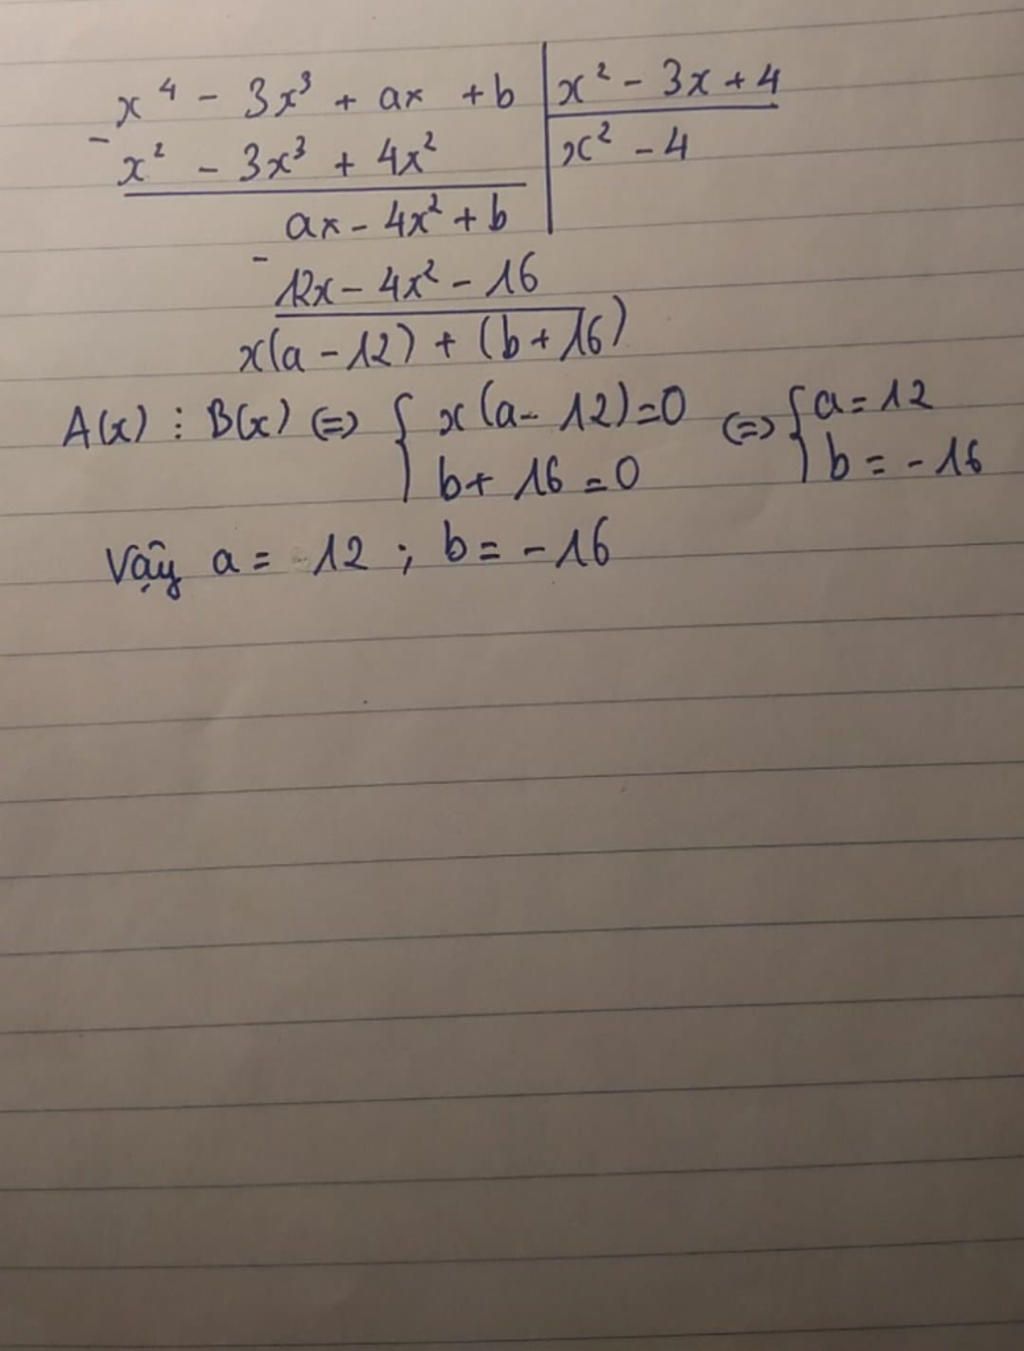 x⁴ - 3x³ + ax + b | x² - 3x + 4
- x² - 3x³ + 4x² | x² - 4
ax - 4x² + b
- 12x - 4x² - 16
x(a - 12) + (b + 16)
A(x) ⋮ B(x) (=) { x(a - 12) = 0 (=) { a = 12
b + 16 = 0 b = -16
Vậy a = 12 ; b = -16